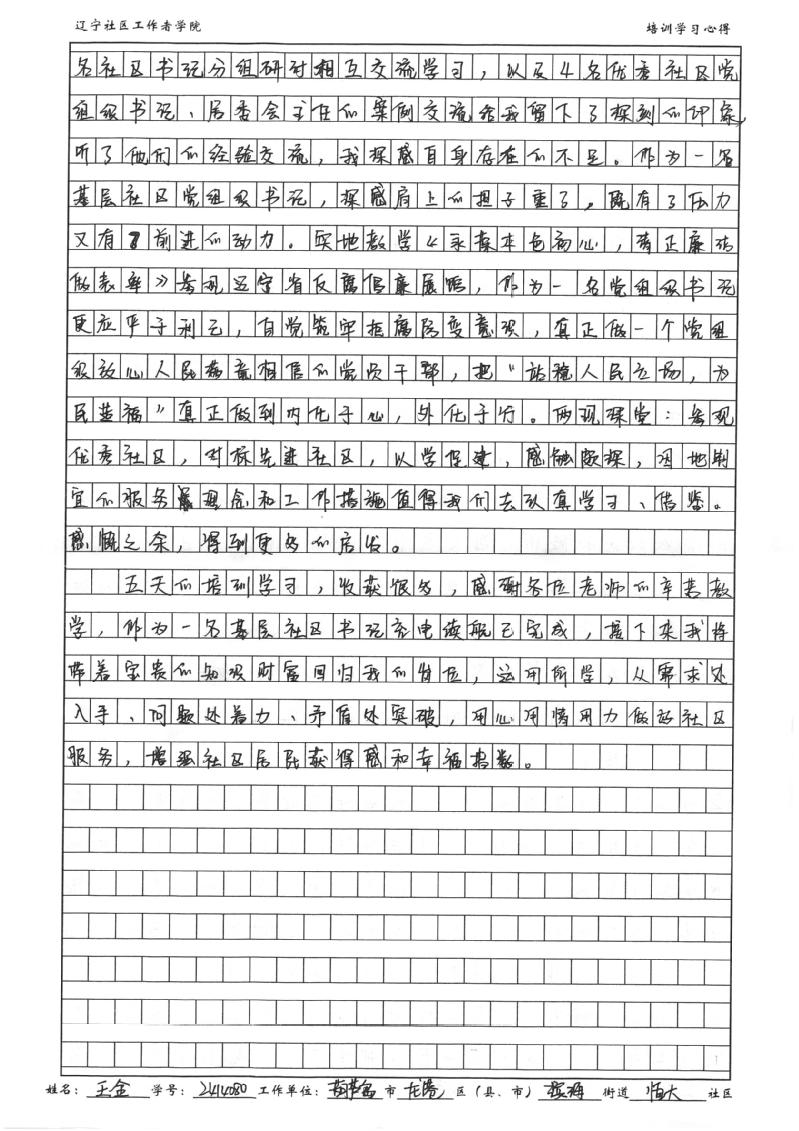 辽宁社区工作者学院 培训学习心得
名社区书记分组研讨相互交流学习，以及4名优秀社区党
组织书记、居委会主任的案例交流给我留下了深刻的印象，
听了他们的经验交流，我深感自身存在的不足。作为一名
基层社区党组织书记，深感肩上的担子重了。既有了压力
又有了前进的动力。实地教学《永葆本色初心，清正廉洁
做表率》参观辽宁省反腐倡廉展馆，作为一名党组织书记
更应平于利己，自觉筑牢拒腐防变意识，真正做一个党组
织放心人民群众相信的党员干部，把“站稳人民立场，为
民造福”真正做到内化于心，外化于行。两现课堂：参观
优秀社区，对标先进社区，以学促建，感触颇深，因地制
宜的服务理念和工作措施值得我们去认真学习、借鉴。
感慨之余，得到更多的启发。
五天的培训学习，收获很多，感谢各位老师的辛苦教
学，作为一名基层社区书记充电续航已完成，接下来我将
带着宝贵的知识财富回归我的岗位，运用所学，从需求处
入手、问题处着力、矛盾处突破，用心用情用力做好社区
服务，增强社区居民获得感和幸福指数。
姓名：王金 学号：2414080 工作单位：葫芦岛市龙港区（县、市）滨海街道恒大社区